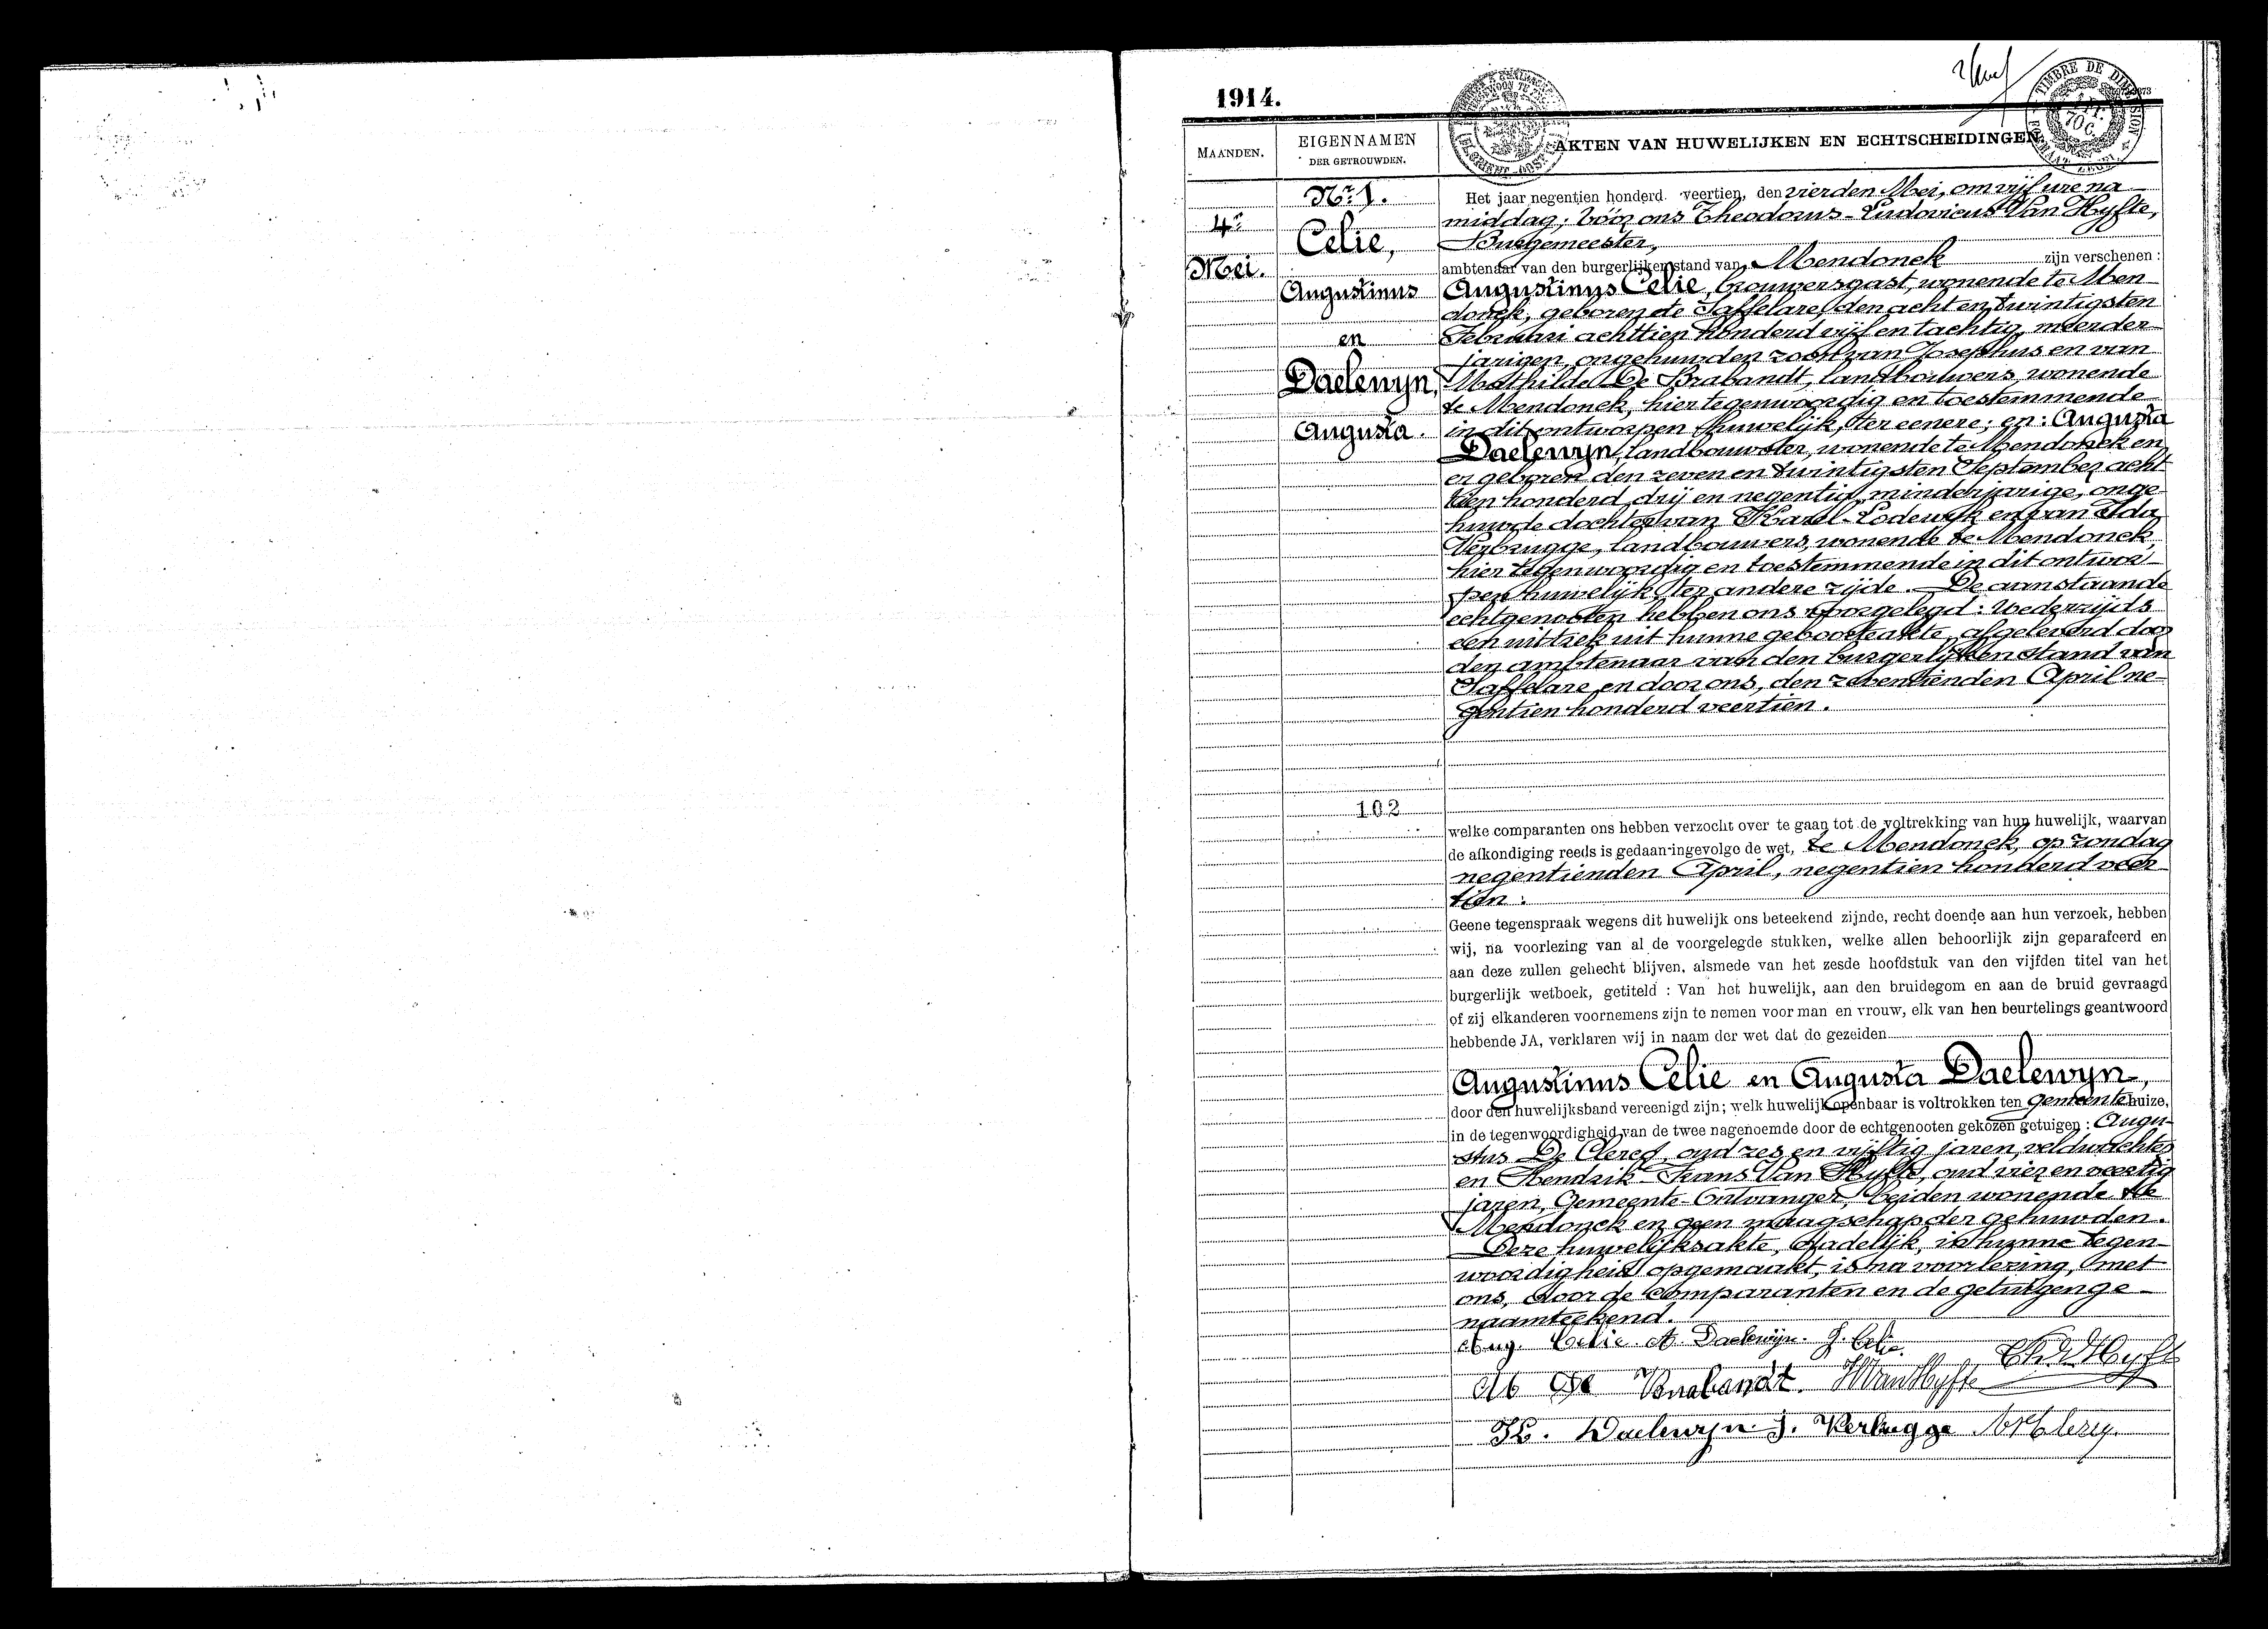 1914.
MAANDEN.
EIGENNAMEN
DER GETROUWDEN.
AKTEN VAN HUWELIJKEN EN ECHTSCHEIDINGEN
TIMBRE DE DIMENSION
70 C.
4e
Mei.
Nr 1.
Celie,
Augustinus
en
Daelewyn,
Augusta.
102
Het jaar negentien honderd veertien, den vierden Mei, om vijf ure na
middag; vóór ons Theodorus-Ludovicus Van Hyfte,
Burgemeester,
ambtenaar van den burgerlijken stand van Mendonck zijn verschenen :
Augustinus Celie, brouwersgast, wonende te Men-
donck, geboren te Saffelare den acht en twintigsten
Februari achttien honderd vijf en tachtig, meerder-
jarigen, ongehuwden zoon van Josephus en van
Mathilde De Brabandt, landbouwers, wonende
te Mendonck, hier tegenwoordig en toestemmende
in dit ontworpen huwelijk, ter eenere; en: Augusta
Daelewyn, landbouwster, wonende te Mendonck en
er geboren den zeven en twintigsten September acht-
tien honderd drij en negentig, minderjarige, onge-
huwde dochter van Karel-Lodewijk en van Ida
Verbrugge, landbouwers, wonende te Mendonck,
hier tegenwoordig en toestemmende in dit ontwor-
pen huwelijk, ter andere zijde. De aanstaande
echtgenooten hebben ons voorgelegd: wederzijds
een uittrek uit hunne geboorteakte, afgeleverd door
den ambtenaar van den burgerlijken stand van
Saffelare en door ons, den zeventienden April ne-
gentien honderd veertien.
welke comparanten ons hebben verzocht over te gaan tot de voltrekking van hun huwelijk, waarvan
de afkondiging reeds is gedaan ingevolge de wet, te Mendonck, op zondag
negentienden April, negentien honderd veer-
tien :
Geene tegenspraak wegens dit huwelijk ons beteekend zijnde, recht doende aan hun verzoek, hebben
wij, na voorlezing van al de voorgelegde stukken, welke allen behoorlijk zijn geparafeerd en
aan deze zullen gehecht blijven, alsmede van het zesde hoofdstuk van den vijfden titel van het
burgerlijk wetboek, getiteld : Van het huwelijk, aan den bruidegom en aan de bruid gevraagd
of zij elkanderen voornemens zijn te nemen voor man en vrouw, elk van hen beurtelings geantwoord
hebbende JA, verklaren wij in naam der wet dat de gezeiden
Augustinus Celie en Augusta Daelewyn,
door den huwelijksband vereenigd zijn; welk huwelijk openbaar is voltrokken ten gemeentehuize,
in de tegenwoordigheid van de twee nagenoemde door de echtgenooten gekozen getuigen : Augu-
stus De Clercq, oud zes en vijftig jaren, veldwachter
en Hendrik-Frans Van Hyfte, oud vier en veertig
jaren, Gemeente-Ontvanger, beiden wonende te
Mendonck en geen maagschap der gehuwden.
Deze huwelijksakte, dadelijk, in hunne tegen-
woordigheid opgemaakt, is na voorlezing, met
ons, door de comparanten en de getuigen ge-
naamteekend.
Aug. Celie. A. Daelewijn. J. Celie.
M De Brabandt. H Van Hyfte
K. Daelewyn J. Verbugge